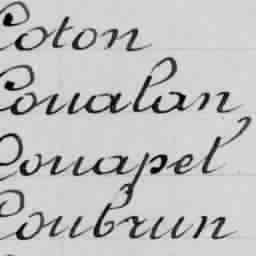 Coton
Coualan
Couapel
Coubrun